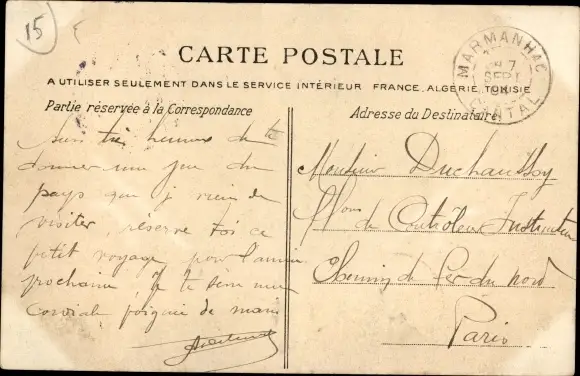 15
CARTE POSTALE
A UTILISER SEULEMENT DANS LE SERVICE INTÉRIEUR FRANCE, ALGÉRIE, TUNISIE
MARMANHAC
7
SEPT
CANTAL
Partie réservée à la Correspondance
Suis très heureux de te
donner une vue du
pays que je viens de
visiter, réserve toi ce
petit voyage pour l'année
prochaine, Je te serre une
cordiale poignée de main
Adresse du Destinataire
Monsieur Duchaussoy
de Contrôleur Instructeur
Chemins de Fer du Nord
Paris